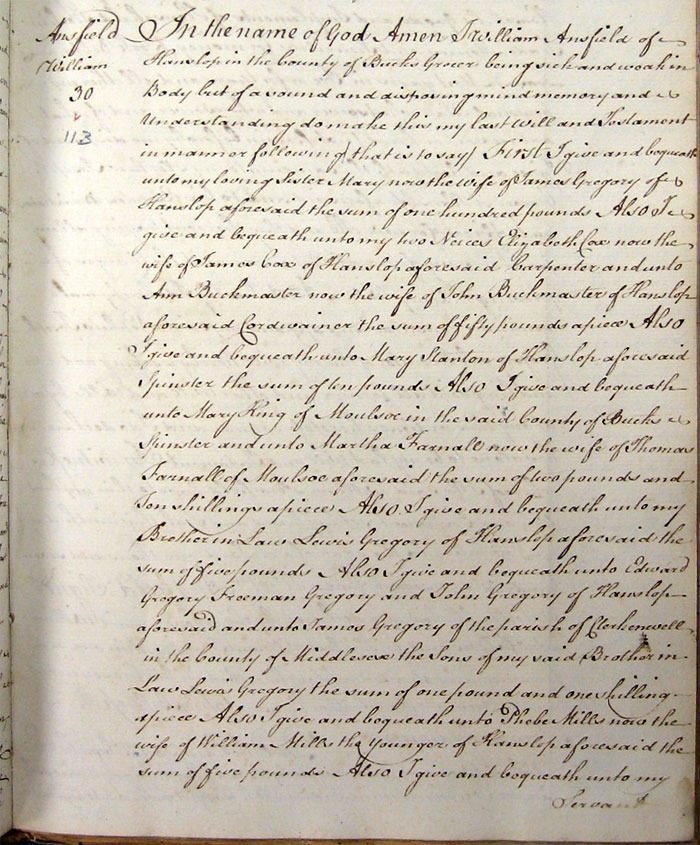 Ansfield
William
30
113
In the name of God Amen I William Ansfield of
Hanslop in the County of Bucks Grocer being sick and weak in
Body but of a sound and disposing mind memory and
Understanding do make this my last Will and Testament
in manner following (that is to say) First I give and bequeath
unto my loving Sister Mary now the wife of James Gregory of
Hanslop aforesaid the sum of one hundred pounds Also I
give and bequeath unto my two Neices Elizabeth Cox now the
wife of James Cox of Hanslop aforesaid Carpenter and unto
Ann Buckmaster now the wife of John Buckmaster of Hanslop
aforesaid Cordwainer the sum of fifty pounds apiece Also
I give and bequeath unto Mary Stanton of Hanslop aforesaid
Spinster the sum of ten pounds Also I give and bequeath
unto Mary King of Moulsoe in the said County of Bucks
Spinster and unto Martha Farnall now the wife of Thomas
Farnall of Moulsoe aforesaid the sum of two pounds and
Ten shillings apiece Also I give and bequeath unto my
Brother in Law Lewis Gregory of Hanslop aforesaid the
sum of five pounds Also I give and bequeath unto Edward
Gregory Freeman Gregory and John Gregory of Hanslop
aforesaid and unto James Gregory of the parish of Clerkenwell
in the County of Middlesex the Sons of my said Brother in
Law Lewis Gregory the sum of one pound and one shilling
apiece Also I give and bequeath unto Phebe Mills now the
wife of William Mills the younger of Hanslop aforesaid the
sum of five pounds Also I give and bequeath unto my
Servant